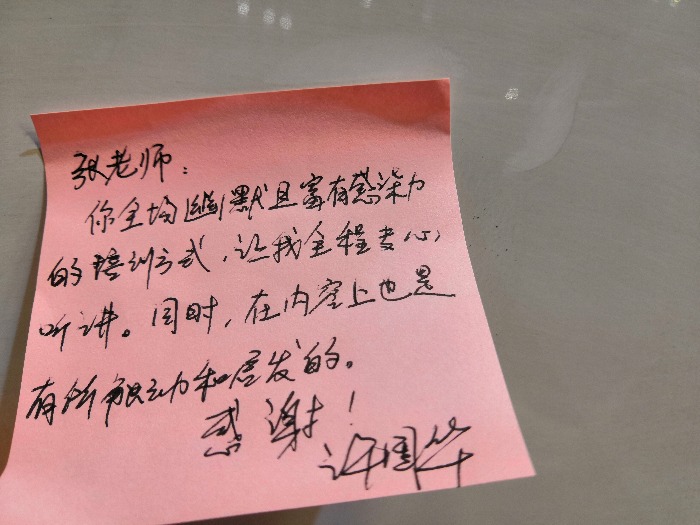 张老师：
你全场幽默且富有感染力
的培训方式，让我全程专心
听讲。同时，在内容上也是
有所触动和启发的。
感谢！
许国华